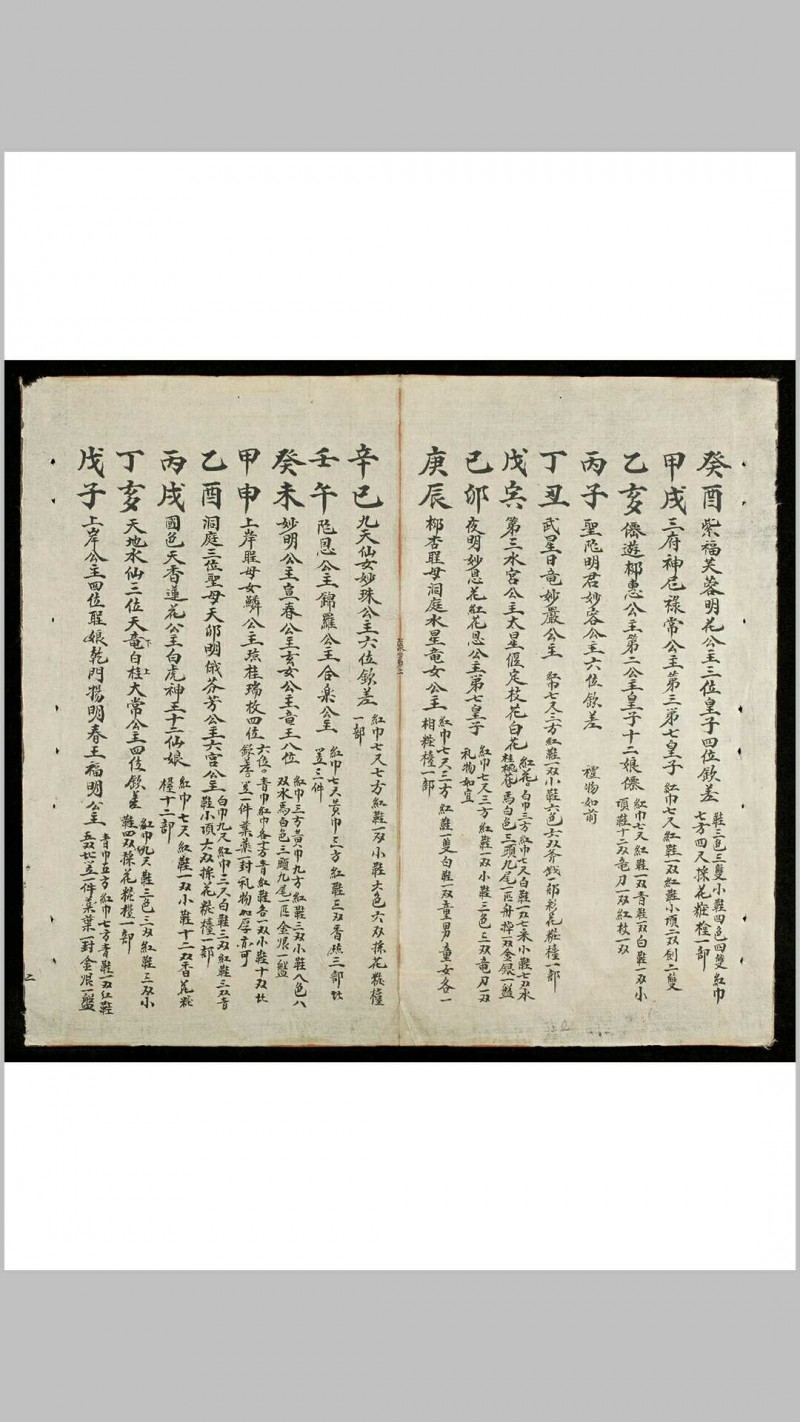 癸酉 紫福芙蓉明花公主三位皇子四位欽差 鞋三色三隻小鞋四色四隻紅巾
七方四尺採花粧一部
甲戌 三府神尼祿常公主第三第七皇子 紅巾七尺紅鞋一双紅鞋小項二双劍二隻
乙亥 僚遊椰惠公主第二公主皇子十二娘僚 紅巾七尺紅鞋一双青鞋一双白鞋一双小
項鞋十二双竜刀一双紅枚一双
丙子 聖陀明君妙容公主六位欽差 禮物如前
丁丑 武星日竜妙嚴公主 紅巾七尺三方紅鞋一双小鞋六色六双斧鉞一部彩花粧檯一部
戊寅 第三水宮公主太星偃定枝花白花 紅花白巾三方紅巾七尺白鞋一双七采小鞋七双水
馬白色三頭九尾一匹舟一双金銀一盤
己卯 夜明妙恩花紅花恩公主第七皇子 紅巾七尺三方紅鞋一双小鞋三色三双竜刀一双
礼物如宜
庚辰 椰杏聖母洞庭水星竜女公主 紅巾七尺三方紅鞋一隻白鞋一双童男童女各一
相粧檯一部
辛巳 九天仙女妙珠公主六位欽差 紅巾七尺七方紅鞋一双小鞋六色六双採花粧檯
一部
壬午 陀恩公主錦羅公主合樂公主 紅巾七尺黃巾三方紅鞋三双香三部
三件
癸未 妙明公主宣春公主玄女公主竜王八位 紅巾三方黃巾九方紅鞋三双小鞋八色八
双水馬白色三頭九尾一匹金銀一盤
甲申 上岸聖母女鱗公主桂瑞枚四位 六位青巾紅巾各十方青紅鞋各一双小鞋十双
一件葉一封礼物加厚亦可
乙酉 洞庭三位聖母天卯明俄芬芳公主六宮公主 白巾九尺紅巾三尺白鞋三双紅鞋三双青
鞋小項六双採花粧檯一部
丙戌 國色天香蓮花公主白虎神王十二仙娘 紅巾七尺紅鞋一双小鞋十二双香花粧
檯十二部
丁亥 天地水仙三位天竜白桂太常公主四位欽差 紅巾九尺鞋三色三双紅鞋三双小
鞋四双採花粧檯一部
戊子 上岸公主四位聖娘乾門揚明春王福明公主 青巾五方紅巾七方青鞋一双紅鞋
五双一件葉一封金銀一盤